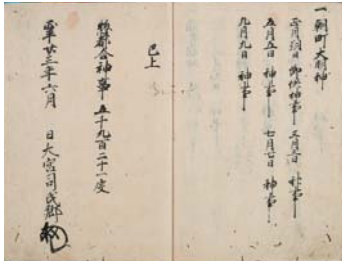 一 町大明神
正月朔日 御供神事 三月三日 神事
五月五日 神事 七月七日 神事
九月九日 神事
已上
惣都合神事 五千九百二十一度
正平廿三年六月 日大宮司氏郷